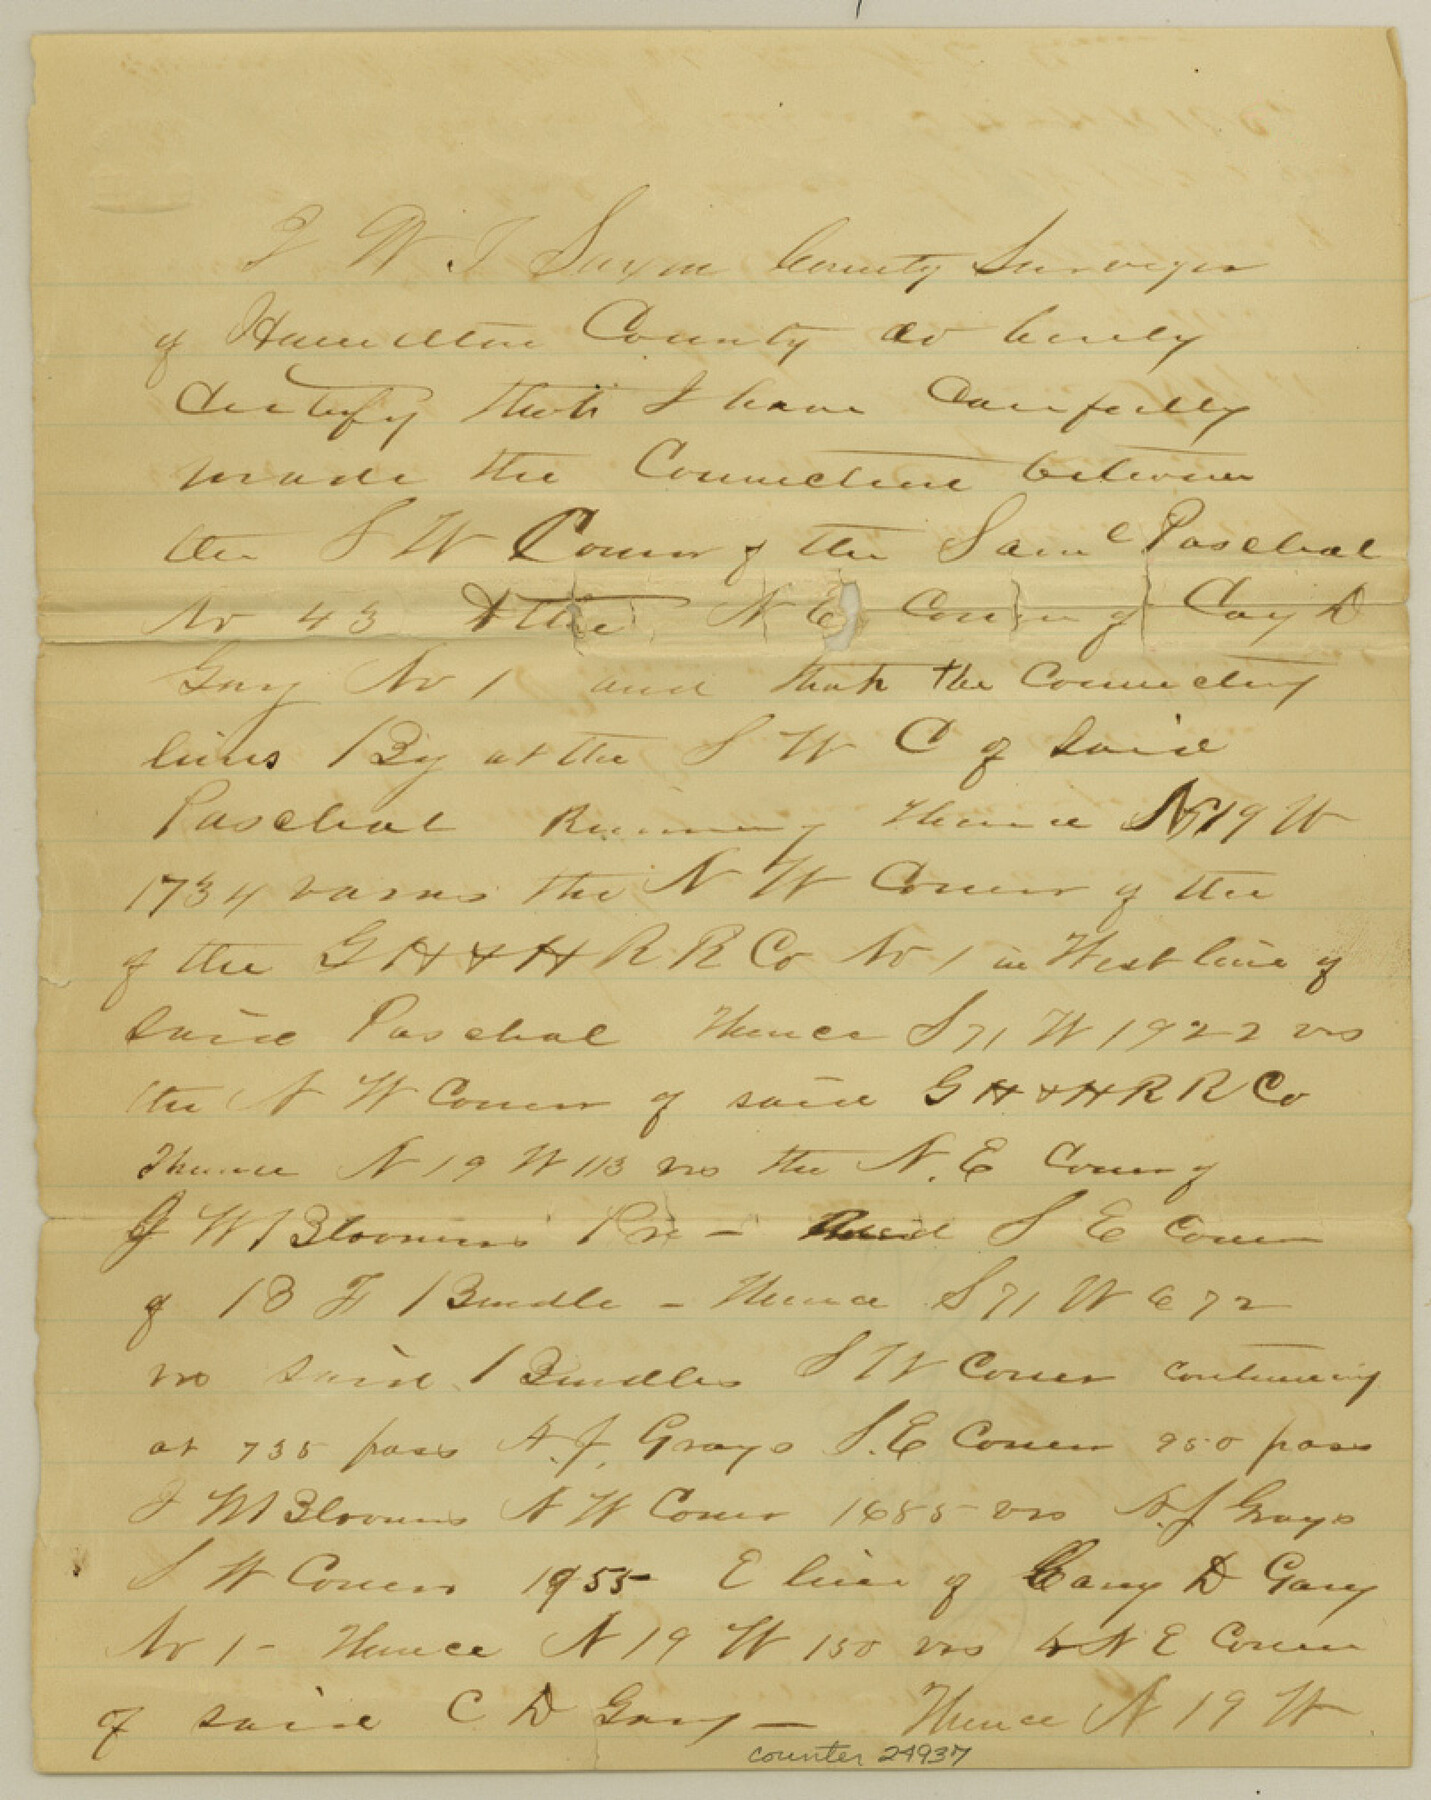 I W. J Saxon County Surveyor
of Hamilton County do hereby
Certify that I have Carefully
made the Connection between
the S W Corner of the Saml Paschal
No 43 & the N E Corner of Cary D
Gary No 1 and that the Connecting
lines Bg at the S W C of Said
Paschal Running Thence N 19 W
1734 varas the N W Corner of the
of the G H & H R R Co No 1 in West line of
Said Paschal Thence S 71 W 1922 vrs
the N W Corner of said G H & H R R Co
Thence N 19 W 113 vrs the N. E Corner of
J W Blooms Pre - S E Corner
of B F Bundle - Thence S 71 W 672
vrs said Bundles S W Corner continuing
at 735 pass A. J. Grays S. E Corner 950 pass
J W Blooms N W Corner 1685 vrs A. J Grays
S W Corner 1955 E line of Cary D Gary
No 1 - Thence N 19 W 150 vrs to N E Corner
of said C D Gary - Thence N 19 W
counter 24937